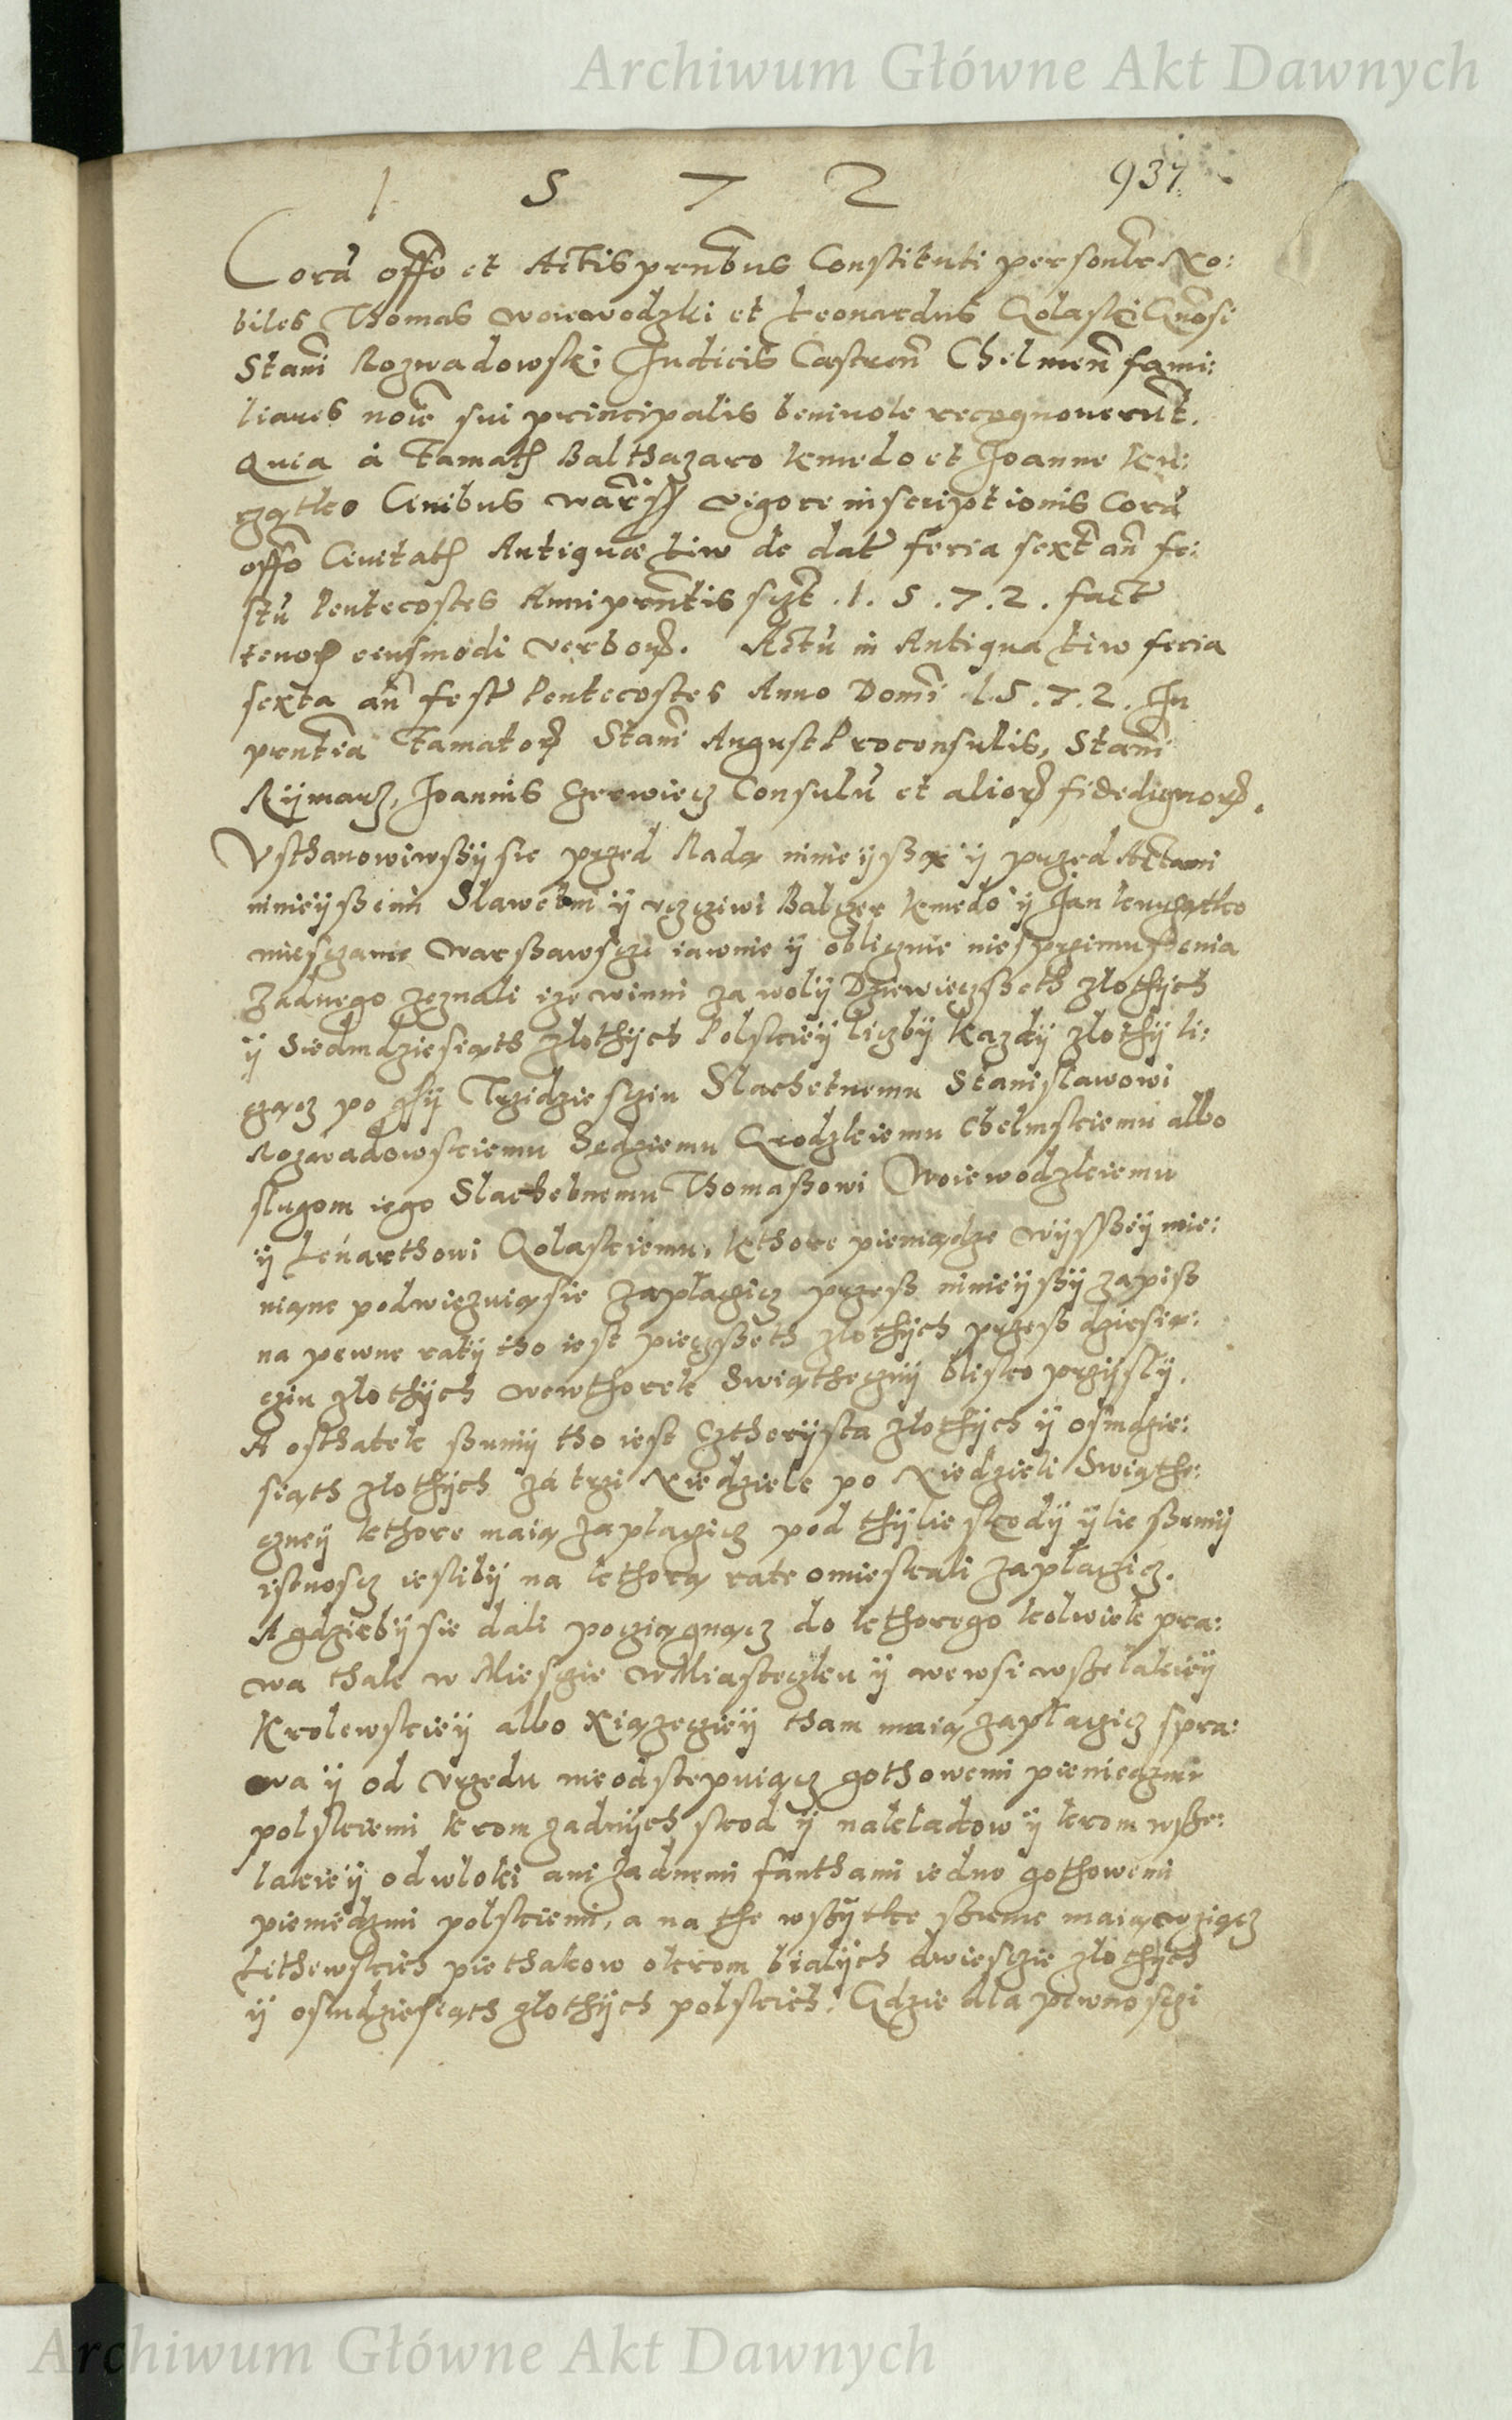 Archiwum Główne Akt Dawnych
1 5 7 2 937
Corā offō et Actis prnbus Constituti personlr No:
biles Thomas woiewodzki et Leonardus Golaski Gnosi
Stani Rozwadowski Judicis Castren Chelmen fami:
liares noie sui principalis beniuole recognouerūt.
Quia á Famath Balthazaro Kmedo et Joanne Ku:
rzątko Ciuibus warss vigore inscriptionis Corā
offō Ciuitath Antiquæ Liw de dat feria sext an fe:
stū Pentecostes Anni prntis sczt .1.5.7.2. fact
tenor eiusmodi verbor. Actū in Antiqua Liw feria
sexta an fest Pentecostes Anno Domi 1.5.7.2. In
prntia Famator Stani August Proconsulis, Stani
Rijmarz, Joannis Gerwiecz Consulū et alior fidedignor.
Vsthanowiwssÿ sie przed Radą ninieÿßą ÿ przed Actami
ninieÿßemi Slawetni ÿ vczciwi Balczer Kmedo ÿ Jan
miesczanie Warßawsczi iawnie ÿ oblicznie nie sprzimußenia
żadnego zeznali ize winni za wolÿ Dziewieczßeth złothÿch
ÿ Siedmdziesiąth złothÿch Polskieÿ liczbÿ każdÿ złothÿ li:
cząz po gsÿ Trzidziescziu Slachetnemu Stanislawowi
Rozwadowskiemu Sędziemu Grodzkiemu Chelmskiemu albo
slugom iego Slachetnemu Thomaßowi Woiewodzkiemu
ÿ Lenarthowi Golaskiemu, kthore pieniądze wÿssheÿ mie:
nione podwiezuią sie zaplacicz przeß ninieÿßÿ zapiß
na pewne ratÿ tho iest pieczßeth złothÿch przeß dziesie:
cziu złothÿch wewthorek Swiąthecznÿ blisko przÿslÿ.
A osthatek sumÿ tho iest Czterÿsta złothÿch ÿ osmdzie:
siąth złothÿch za trzi Niedziele po Niedzieli Swiąthe:
czneÿ kthore maią zaplacicz pod thÿlie skodÿ ÿlie sumÿ
istnoscz iestlibÿ na kthorą rate omieskali zaplacicz.
A gdziebÿ sie dali pocziągnącz do kthorego kolwiek pra:
wa thak w Miesczie w Miasteczku ÿ we wsi wßelakieÿ
Krolewskieÿ albo Xiązecieÿ tham maią zaplacicz spra:
wa ÿ od vrzedu nieodstepuiącz gothowemi pieniedzmi
polskiemi krom żadnÿch skod ÿ nakladow ÿ krom wße:
lakieÿ odwloki ani żadnemi fanthami iedno gothowemi
pieniedzmi polskiemi, a na the wßÿtke sume maią wziącz
Lithewskich piethakow okrom bialÿch dwiesczie złothÿch
ÿ osmdziesiąth złothÿch polskich. Gdzie dla pewnosczi
Archiwum Główne Akt Dawnych